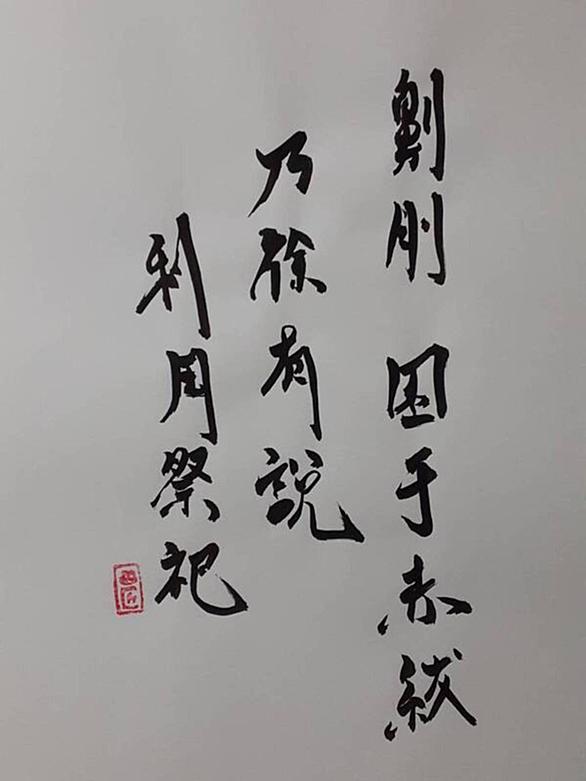 劓刖 困于赤紱
乃徐有說
利用祭祀